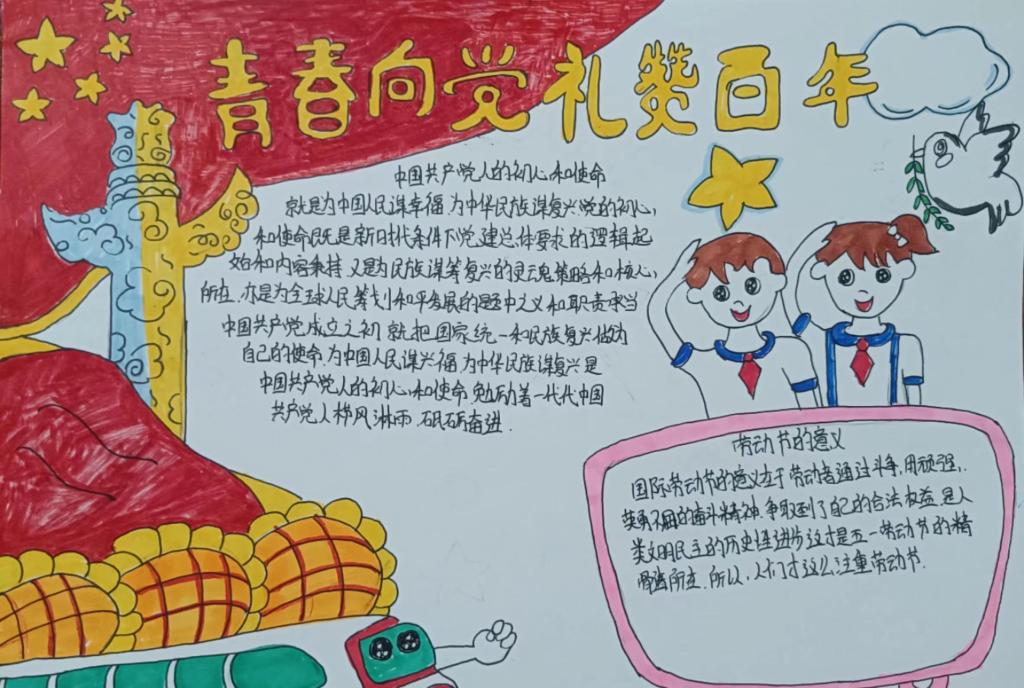 青春向党礼赞百年
中国共产党人的初心和使命
就是为中国人民谋幸福为中华民族谋复兴党的初心,
和使命既是新时代条件下党建总体要求的逻辑起
始和内容秉持又是为民族谋筹复兴的灵魂策略和核心,
所在.亦是为全球人民筹划和平发展的题中之义和职责承当
中国共产党成立之初就把国家统一和民族复兴做为
自己的使命.为中国人民谋兴福.为中华民族谋复兴是
中国共产党人的初心和使命.勉励着一代代中国
共产党人栉风淋雨.砥砺奋进.
劳动节的意义
国际劳动节的意义在于劳动者通过斗争,用顽强,.
英勇不屈的奋斗精神.争取到了自己的合法权益.是人
类文明民主的历史性进步这才是五一劳动节的精
髓所在.所以,人们才这么注重劳动节.